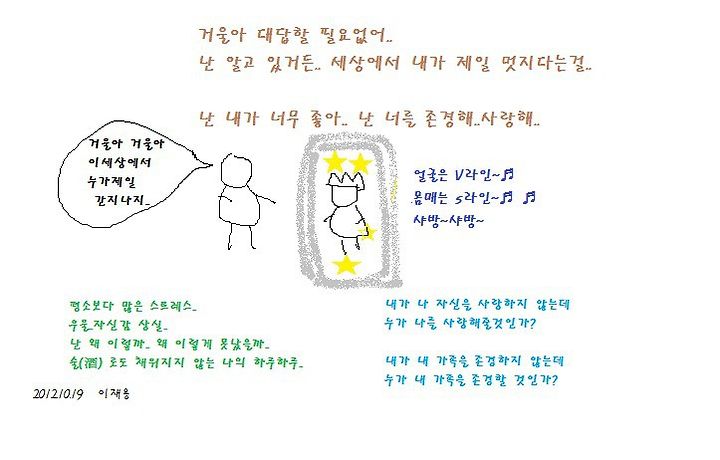 거울아 대답할 필요없어..
난 알고 있거든.. 세상에서 내가 제일 멋지다는걸..
난 내가 너무 좋아.. 난 너를 존경해..사랑해..
거울아 거울아
이세상에서
누가제일
간지나지..
얼굴은 V라인~♬
몸매는 s라인~♬ ♬
샤방~샤방~
평소보다 많은 스트레스..
우울..자신감 상실..
난 왜 이럴까.. 왜 이렇게 못났을까..
술(酒) 로도 채워지지 않는 나의 하루하루..
내가 나 자신을 사랑하지 않는데
누가 나를 사랑해줄것인가?
내가 내 가족을 존경하지 않는데
누가 내 가족을 존경할 것인가?
2012.10.19 이재용